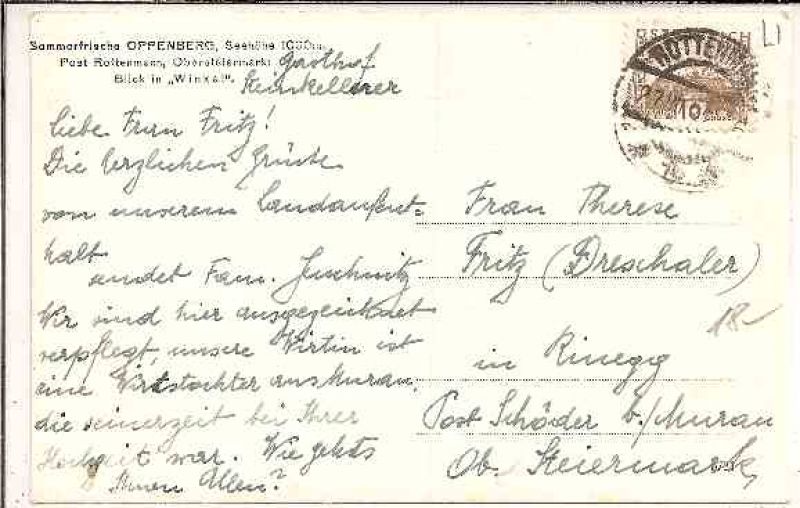 Sommerfrische OPPENBERG, Seehöhe 1000m.
Post Rottenmann, Obersteiermark
Blick in „Winkel".
Gasthof
Steinkellner
Liebe Frau Fritz!
Die herzlichen Grüsse
von unserem Landaufent=
halt
sendet Fam.
Wir sind hier ausgezeichnet
verpflegt, unsere Wirtin ist
eine Wirtstochter aus Murau,
die seinerzeit bei Ihrer
Hochzeit war. Wie gehts
Ihnen Allen?
ÖSTERREICH
ROTTENM
10
Frau Therese
Fritz (Dreschaler)
in Rinegg
Post Schöder b./Murau
Ob. Steiermark
18-